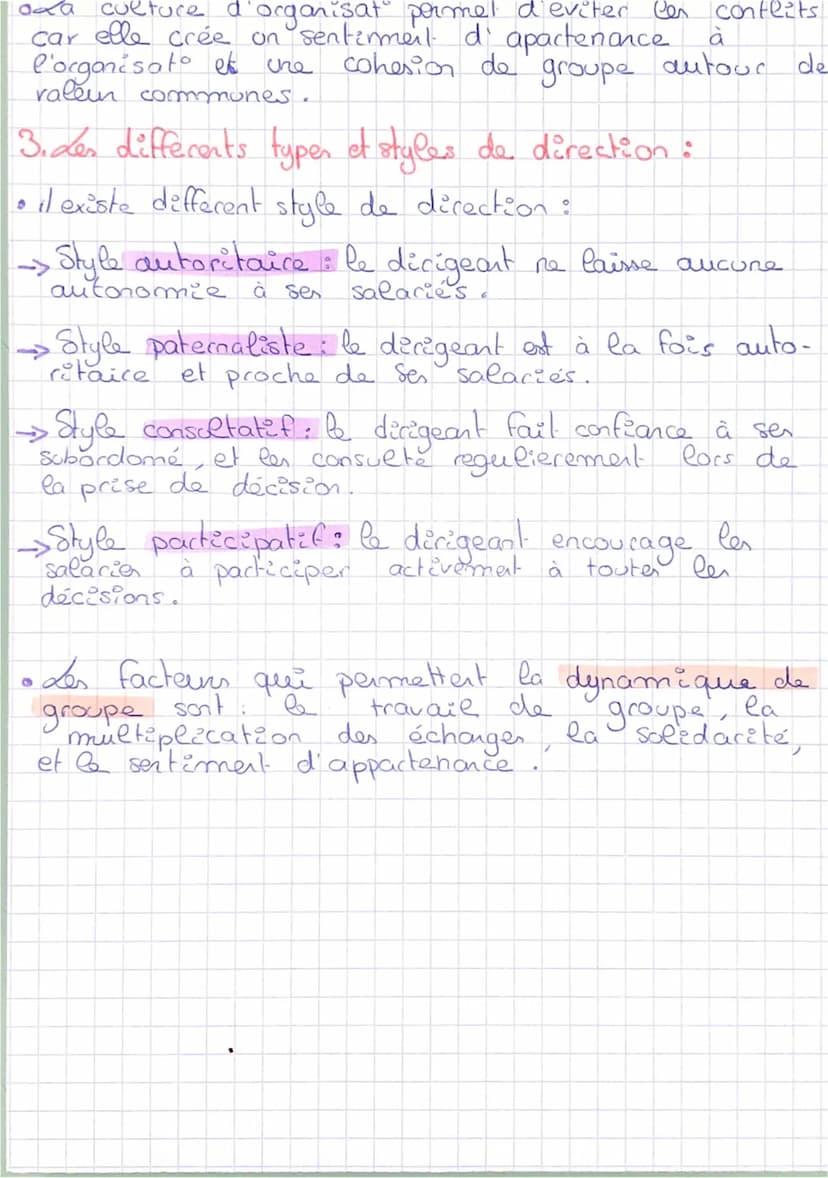 • La culture d'organisat° permet d'eviter les conflits
car elle crée un sentiment d'apartenance à
l'organisat° et une cohesion de groupe autour de
valeur communes.
3. Les différents types et styles de direction :
• il existe different style de direction :
→ Style autoritaire : le dirigeant ne laisse aucune
autonomie à ses salariés.
→ Style paternaliste : le dirigeant est à la fois auto-
ritaire et proche de ses salariés.
→ Style consultatif : le dirigeant fait confiance à ses
subordonné, et les consulte regulierement lors de
la prise de décision.
→ Style participatif : le dirigeant encourage les
salariés à participer activement à toutes les
décisions.
• Les facteurs qui permettent la dynamique de
groupe sont : le travail de groupe, la
multiplication des échanges, la solidarité,
et le sentiment d'appartenance.